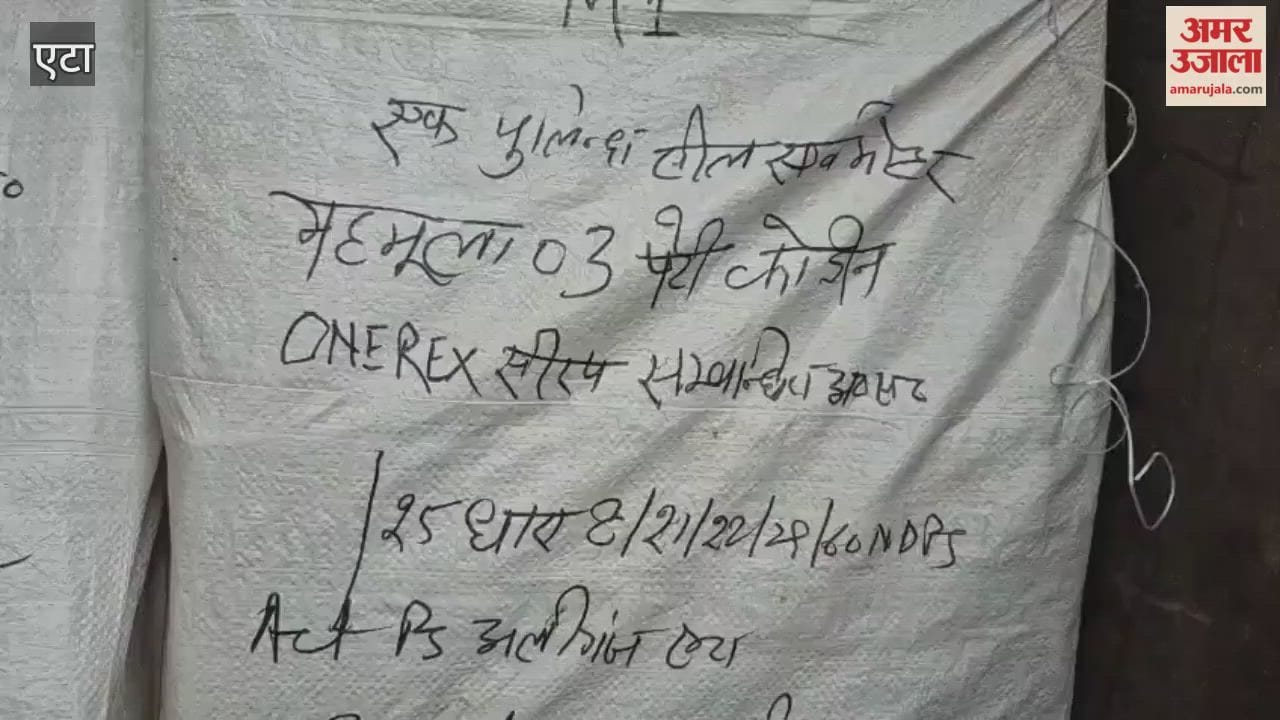 एटा
अमर
उजाला
amarujala.com
M1
एक पुलिन्दा सील सर्वमोहर
महमूला 03 पेटी कोडीन
ONEREX सीरप सम्बन्धित अ0सं0
/25 धारा 8/21/22/29/60 NDPS
Act PS अलीगंज एटा